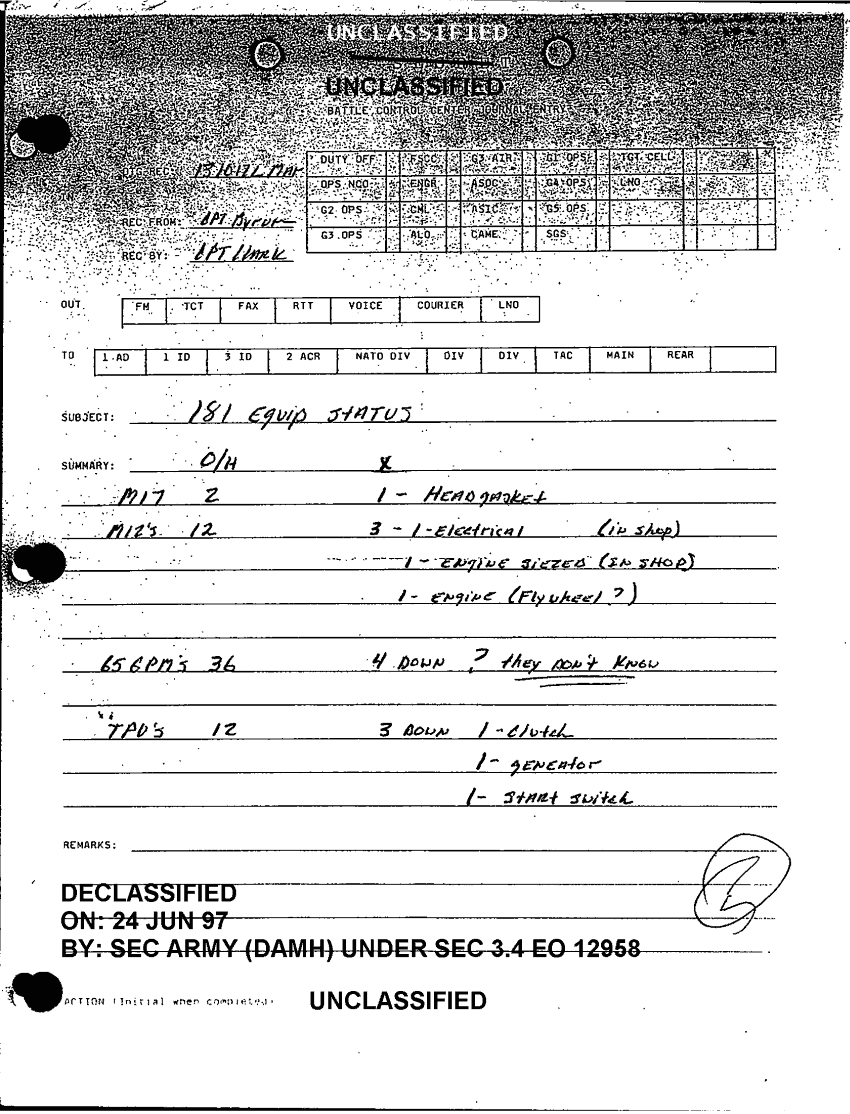 UNCLASSIFIED
UNCLASSIFIED
BATTLE CONTROL CENTER JOURNAL ENTRY
DTG REC: MAR
DUTY OFF FSCC G3 AIR G1 OPS TGT CELL
OPS NCO ENGR ASOC G4 OPS LNO
REC FROM: CPT
G2 OPS CML ASIC G5 OPS
G3 OPS ALO CAME SGS
REC BY: CPT
OUT FM TCT FAX RTT VOICE COURIER LNO
TO 1 AD 1 ID 3 ID 2 ACR NATO DIV DIV DIV TAC MAIN REAR
SUBJECT: 181 Equip STATUS
SUMMARY: O/H X
M17 2 1 - HEADGASKET
M12's 12 3 - 1-Electrical (in shop)
1 - ENGINE SIEZED (IN SHOP)
1- ENGINE (Flywheel ?)
65 GPM's 36 4 DOWN ? they DON'T KNOW
TPU's 12 3 DOWN 1-Clutch
1- gENERAtor
1- START Switch
REMARKS:
DECLASSIFIED
ON: 24 JUN 97
BY: SEC ARMY (DAMH) UNDER SEC 3.4 EO 12958
ACTION (Initial when completed)
UNCLASSIFIED